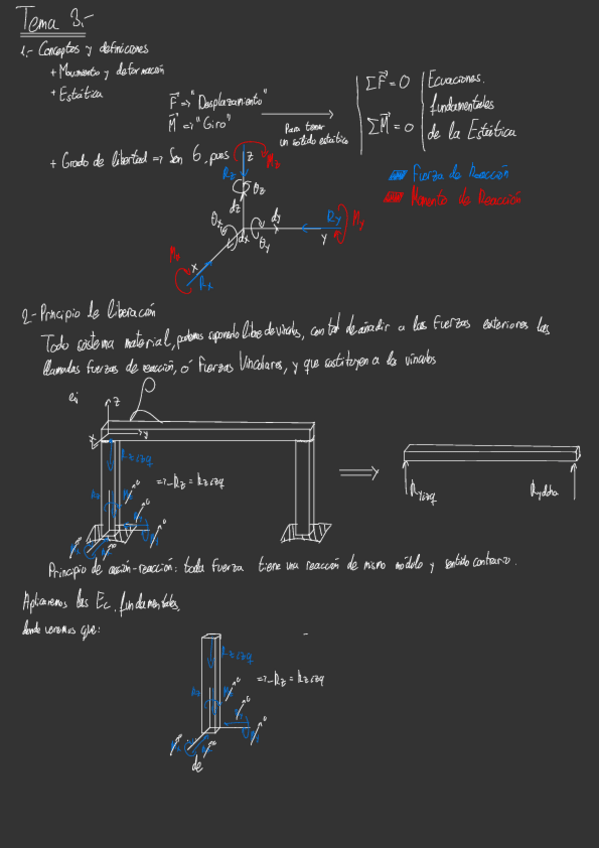 Tema 3.-
1.- Conceptos y definiciones
+ Movimiento y deformación
+ Estática
F => "Desplazamiento"
M => "Giro"
Para tener
un sólido estático
ΣF = 0
ΣM = 0
Ecuaciones
fundamentales
de la Estática
+ Grado de libertad => Son 6, pues
Fuerza de Reacción
Momento de Reacción
z
Rz
Mz
θz
dz
θx
dx
dy
θy
Ry
My
y
x
Rx
2.- Principio de liberación
Todo sistema material, podemos suponerlo libre de vínculos, con tal de añadir a las fuerzas exteriores las
llamadas fuerzas de reacción, ó Fuerzas Vinculares, y que sustituyen a los vínculos
ej
z
x
y
Rz izq
=> -Rz = Rz izq
Ry izq
Ry dcha
Principio de acción-reacción: toda fuerza tiene una reacción de mismo módulo y sentido contrario.
Aplicaremos las Ec. fundamentales,
donde veremos que:
Rz izq
Rz
=> -Rz = Rz izq
de